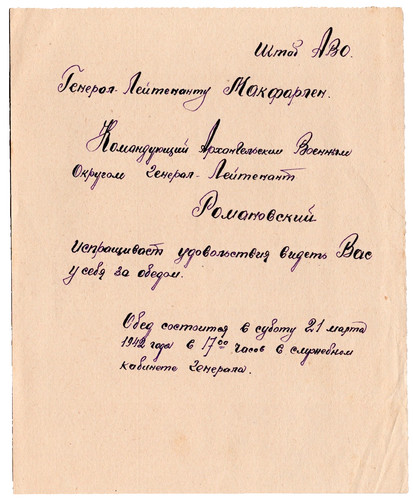 Штаб АВО.
Генерал-Лейтенанту Макфарлен.
Командующий Архангельским Военным
Округом Генерал-Лейтенант
Романовский
испрашивает удовольствия видеть Вас
у себя за обедом.
Обед состоится в субботу 21 марта
1942 года в 17⁰⁰ часов в служебном
кабинете Генерала.